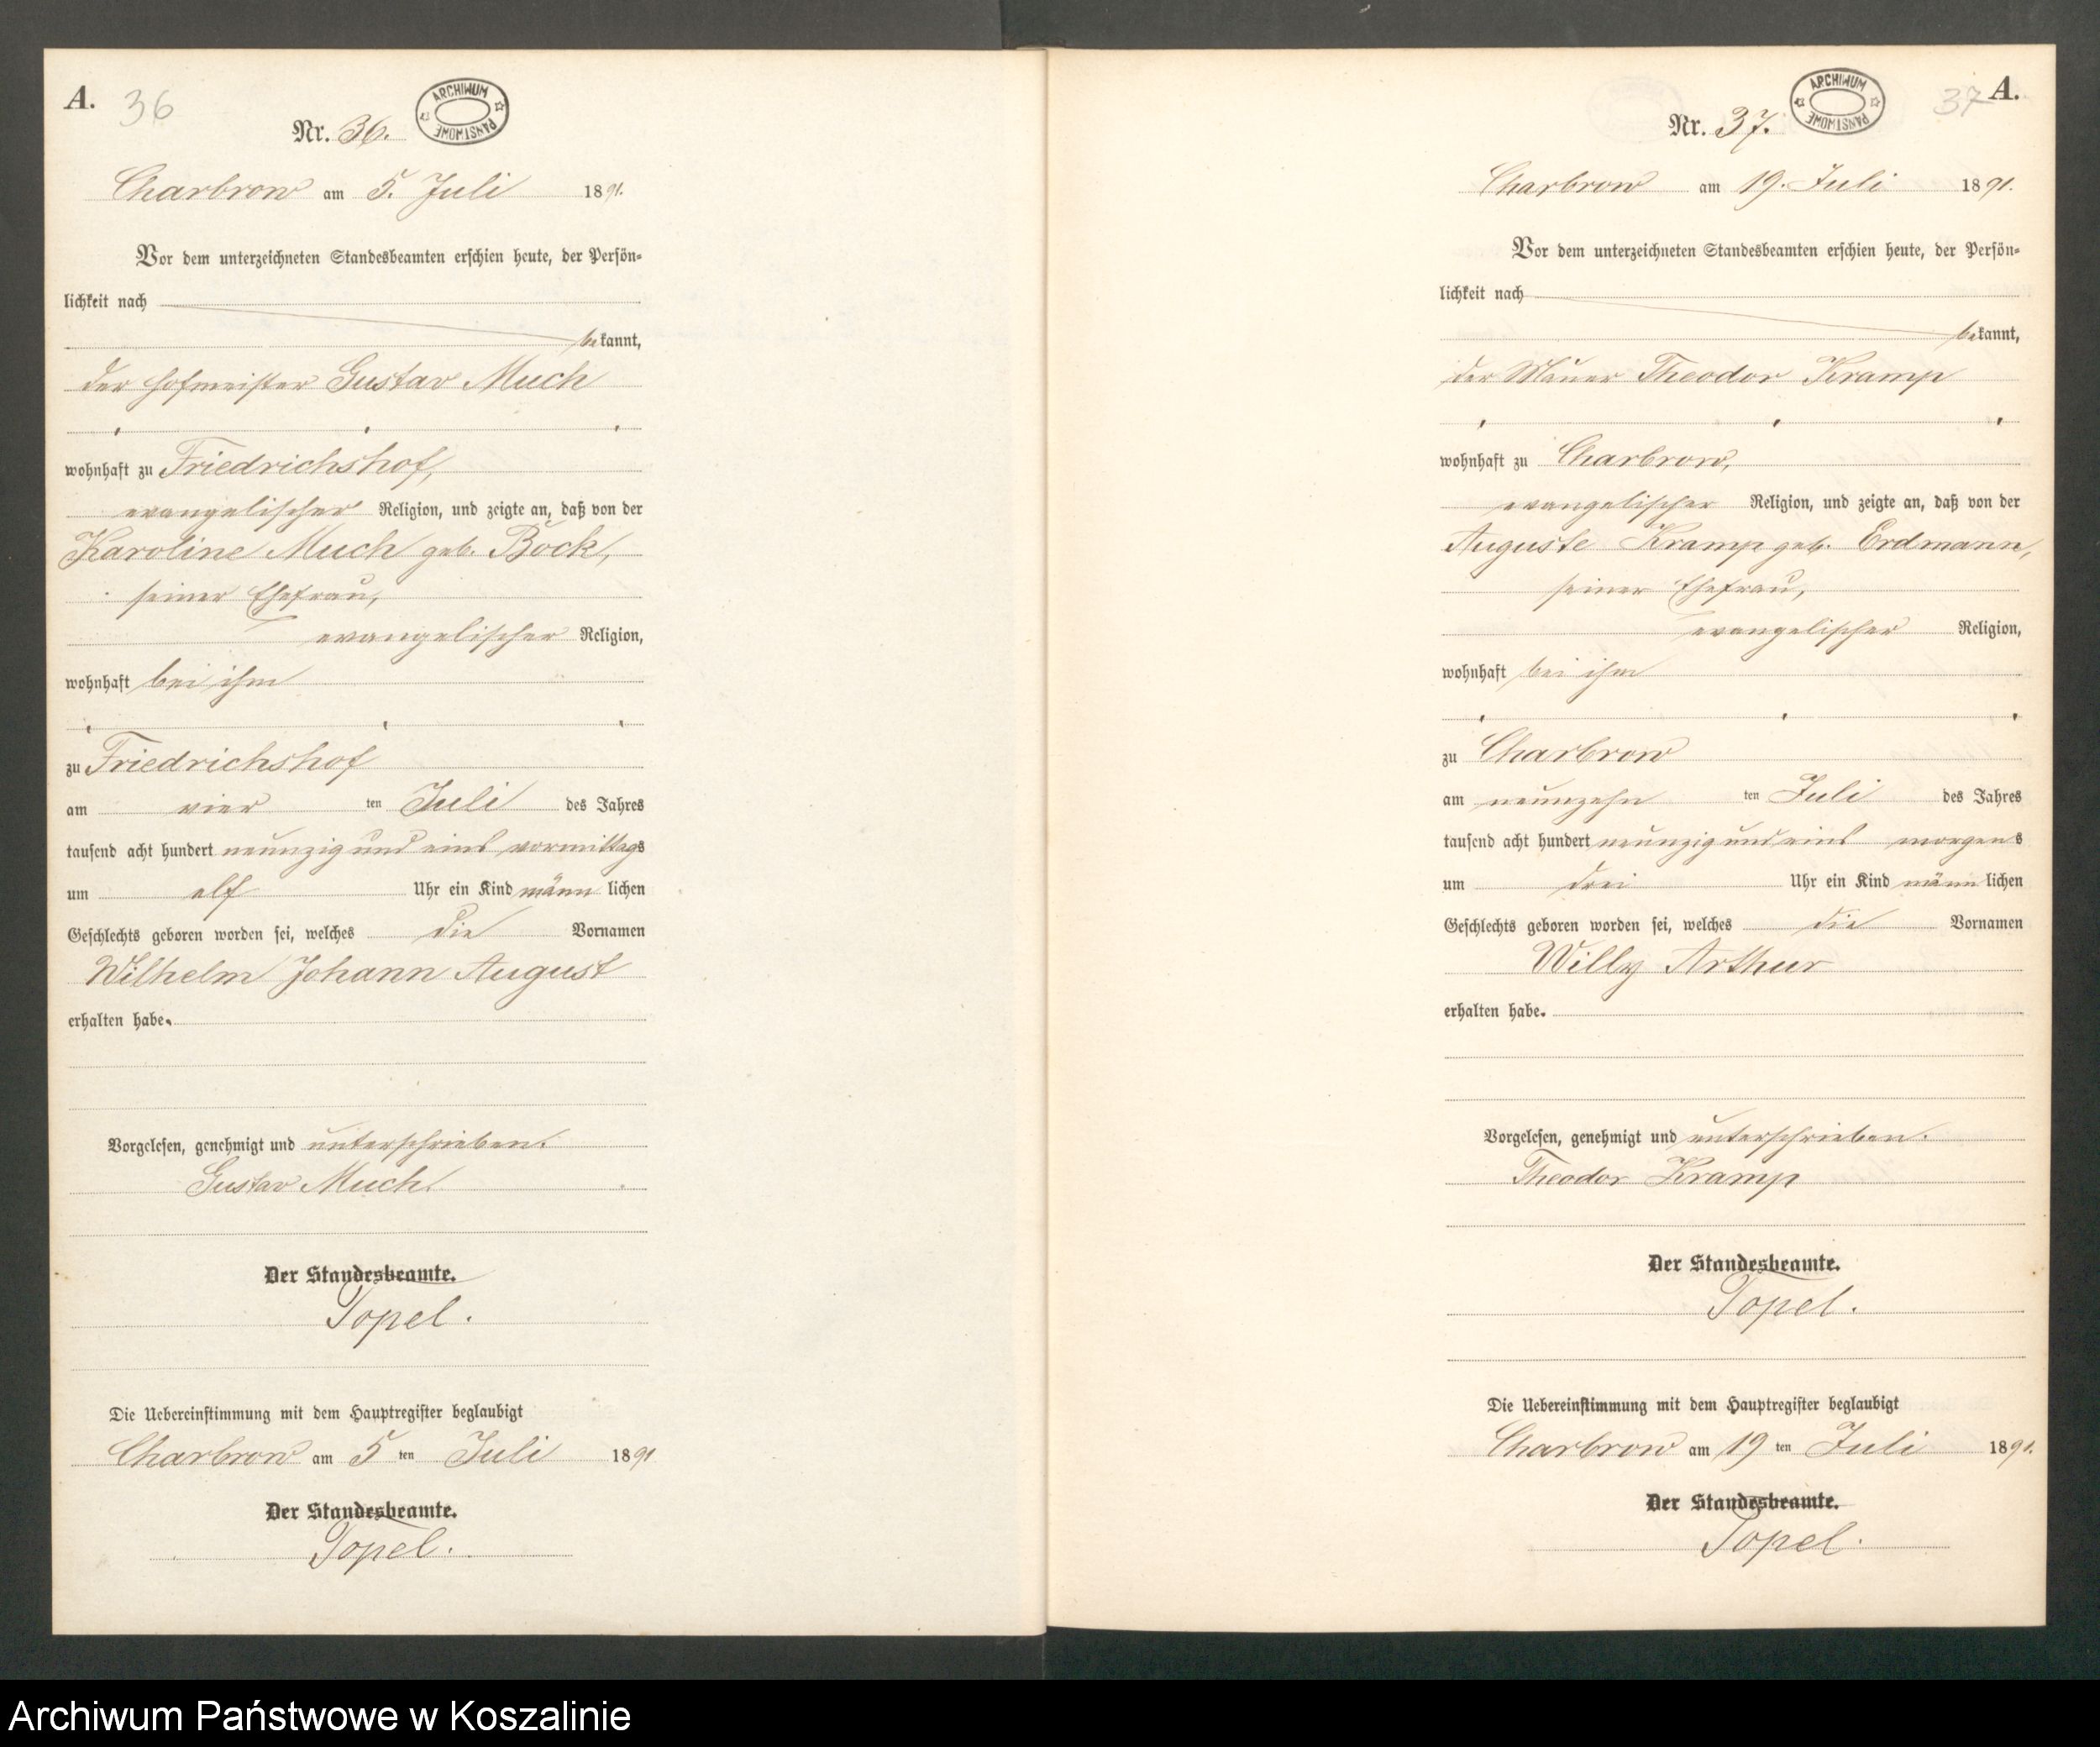 A. 36
Nr. 36.
ARCHIWUM PAŃSTWOWE
Charbrow am 5. Juli 1891.
Vor dem unterzeichneten Standesbeamten erschien heute, der Persön-
lichkeit nach
bekannt,
der Hofmeister Gustav Much
wohnhaft zu Friedrichshof,
evangelischer Religion, und zeigte an, daß von der
Karoline Much geb. Bock,
seiner Ehefrau,
evangelischer Religion,
wohnhaft bei ihm
zu Friedrichshof
am vier ten Juli des Jahres
tausend acht hundert neunzig und eins vormittags
um elf Uhr ein Kind männ lichen
Geschlechts geboren worden sei, welches die Vornamen
Wilhelm Johann August
erhalten habe.
Vorgelesen, genehmigt und unterschrieben.
Gustav Much
Der Standesbeamte.
Topel.
Die Uebereinstimmung mit dem Hauptregister beglaubigt
Charbrow am 5 ten Juli 1891
Der Standesbeamte.
Topel.
37 A.
Nr. 37.
ARCHIWUM PAŃSTWOWE
Charbrow am 19. Juli 1891.
Vor dem unterzeichneten Standesbeamten erschien heute, der Persön-
lichkeit nach
bekannt,
der Theodor Kramp
wohnhaft zu Charbrow,
evangelischer Religion, und zeigte an, daß von der
Auguste Kramp geb. Erdmann,
seiner Ehefrau,
evangelischer Religion,
wohnhaft bei ihm
zu Charbrow
am neunzehn ten Juli des Jahres
tausend acht hundert neunzig und eins morgens
um drei Uhr ein Kind männ lichen
Geschlechts geboren worden sei, welches die Vornamen
Willy Arthur
erhalten habe.
Vorgelesen, genehmigt und unterschrieben.
Theodor Kramp
Der Standesbeamte.
Topel.
Die Uebereinstimmung mit dem Hauptregister beglaubigt
Charbrow am 19 ten Juli 1891.
Der Standesbeamte.
Topel.
Archiwum Państwowe w Koszalinie